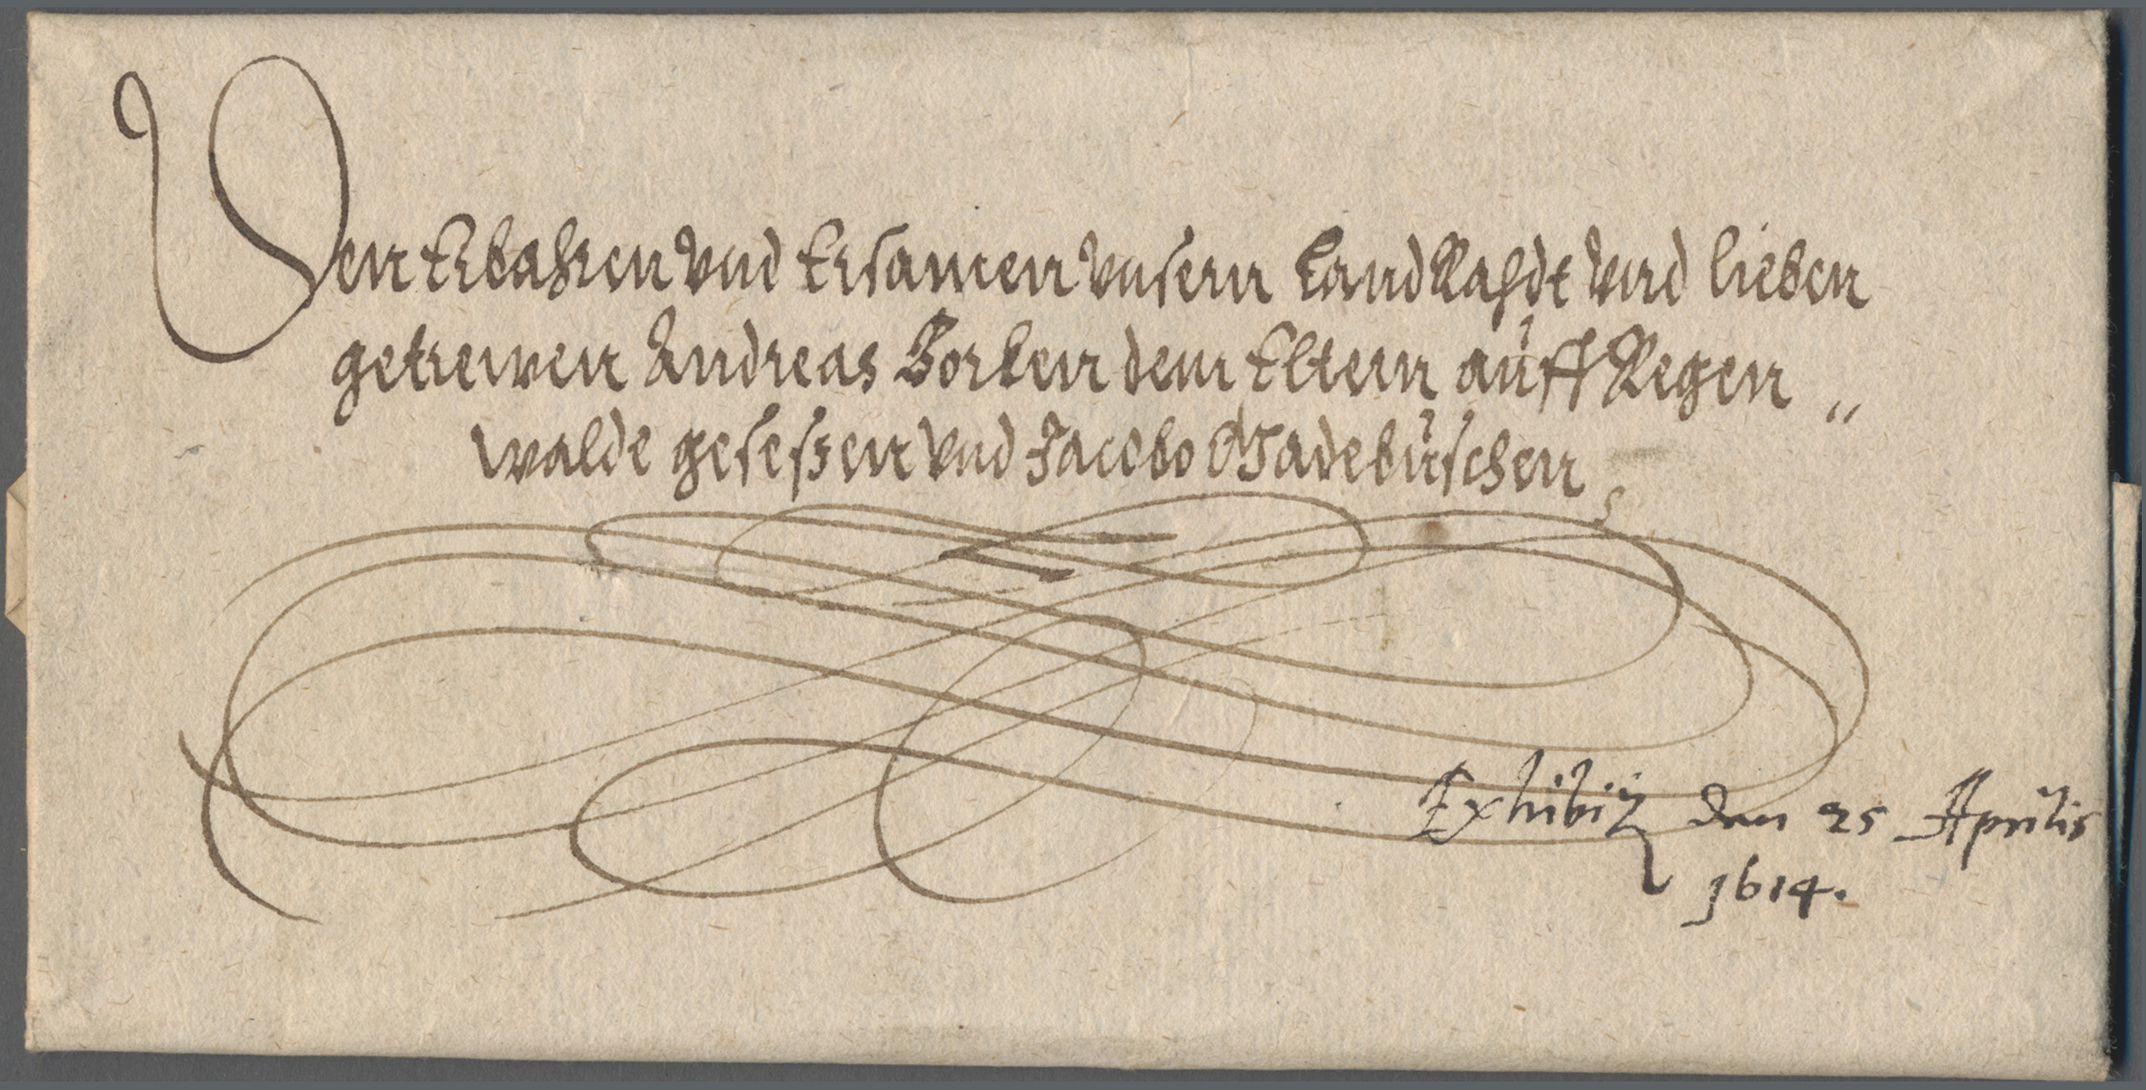 Den Erbahren Vnd Ersamen Vnsern LandRahdt Vnd lieben
getrewen Andreas Borken dem Eltern auff Regen„
walde geseßen Vnd Jacobo Gadebuschen
Exhibit den 25 Aprilis
1614.